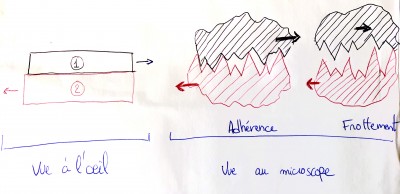 ①
②
Adhérence
Frottement
Vue à l'oeil
Vue au microscope